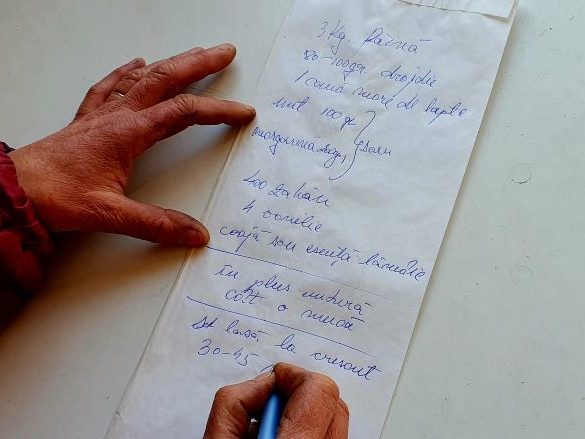 3 Kg. făină
80-100gr. drojdie
1 cană mare de lapte
unt 100gr
margarină sau
400 zahăr
4 vanilie
coajă sau esență lămâie
în plus untură
cât o nucă
se lasă la crescut
30-45